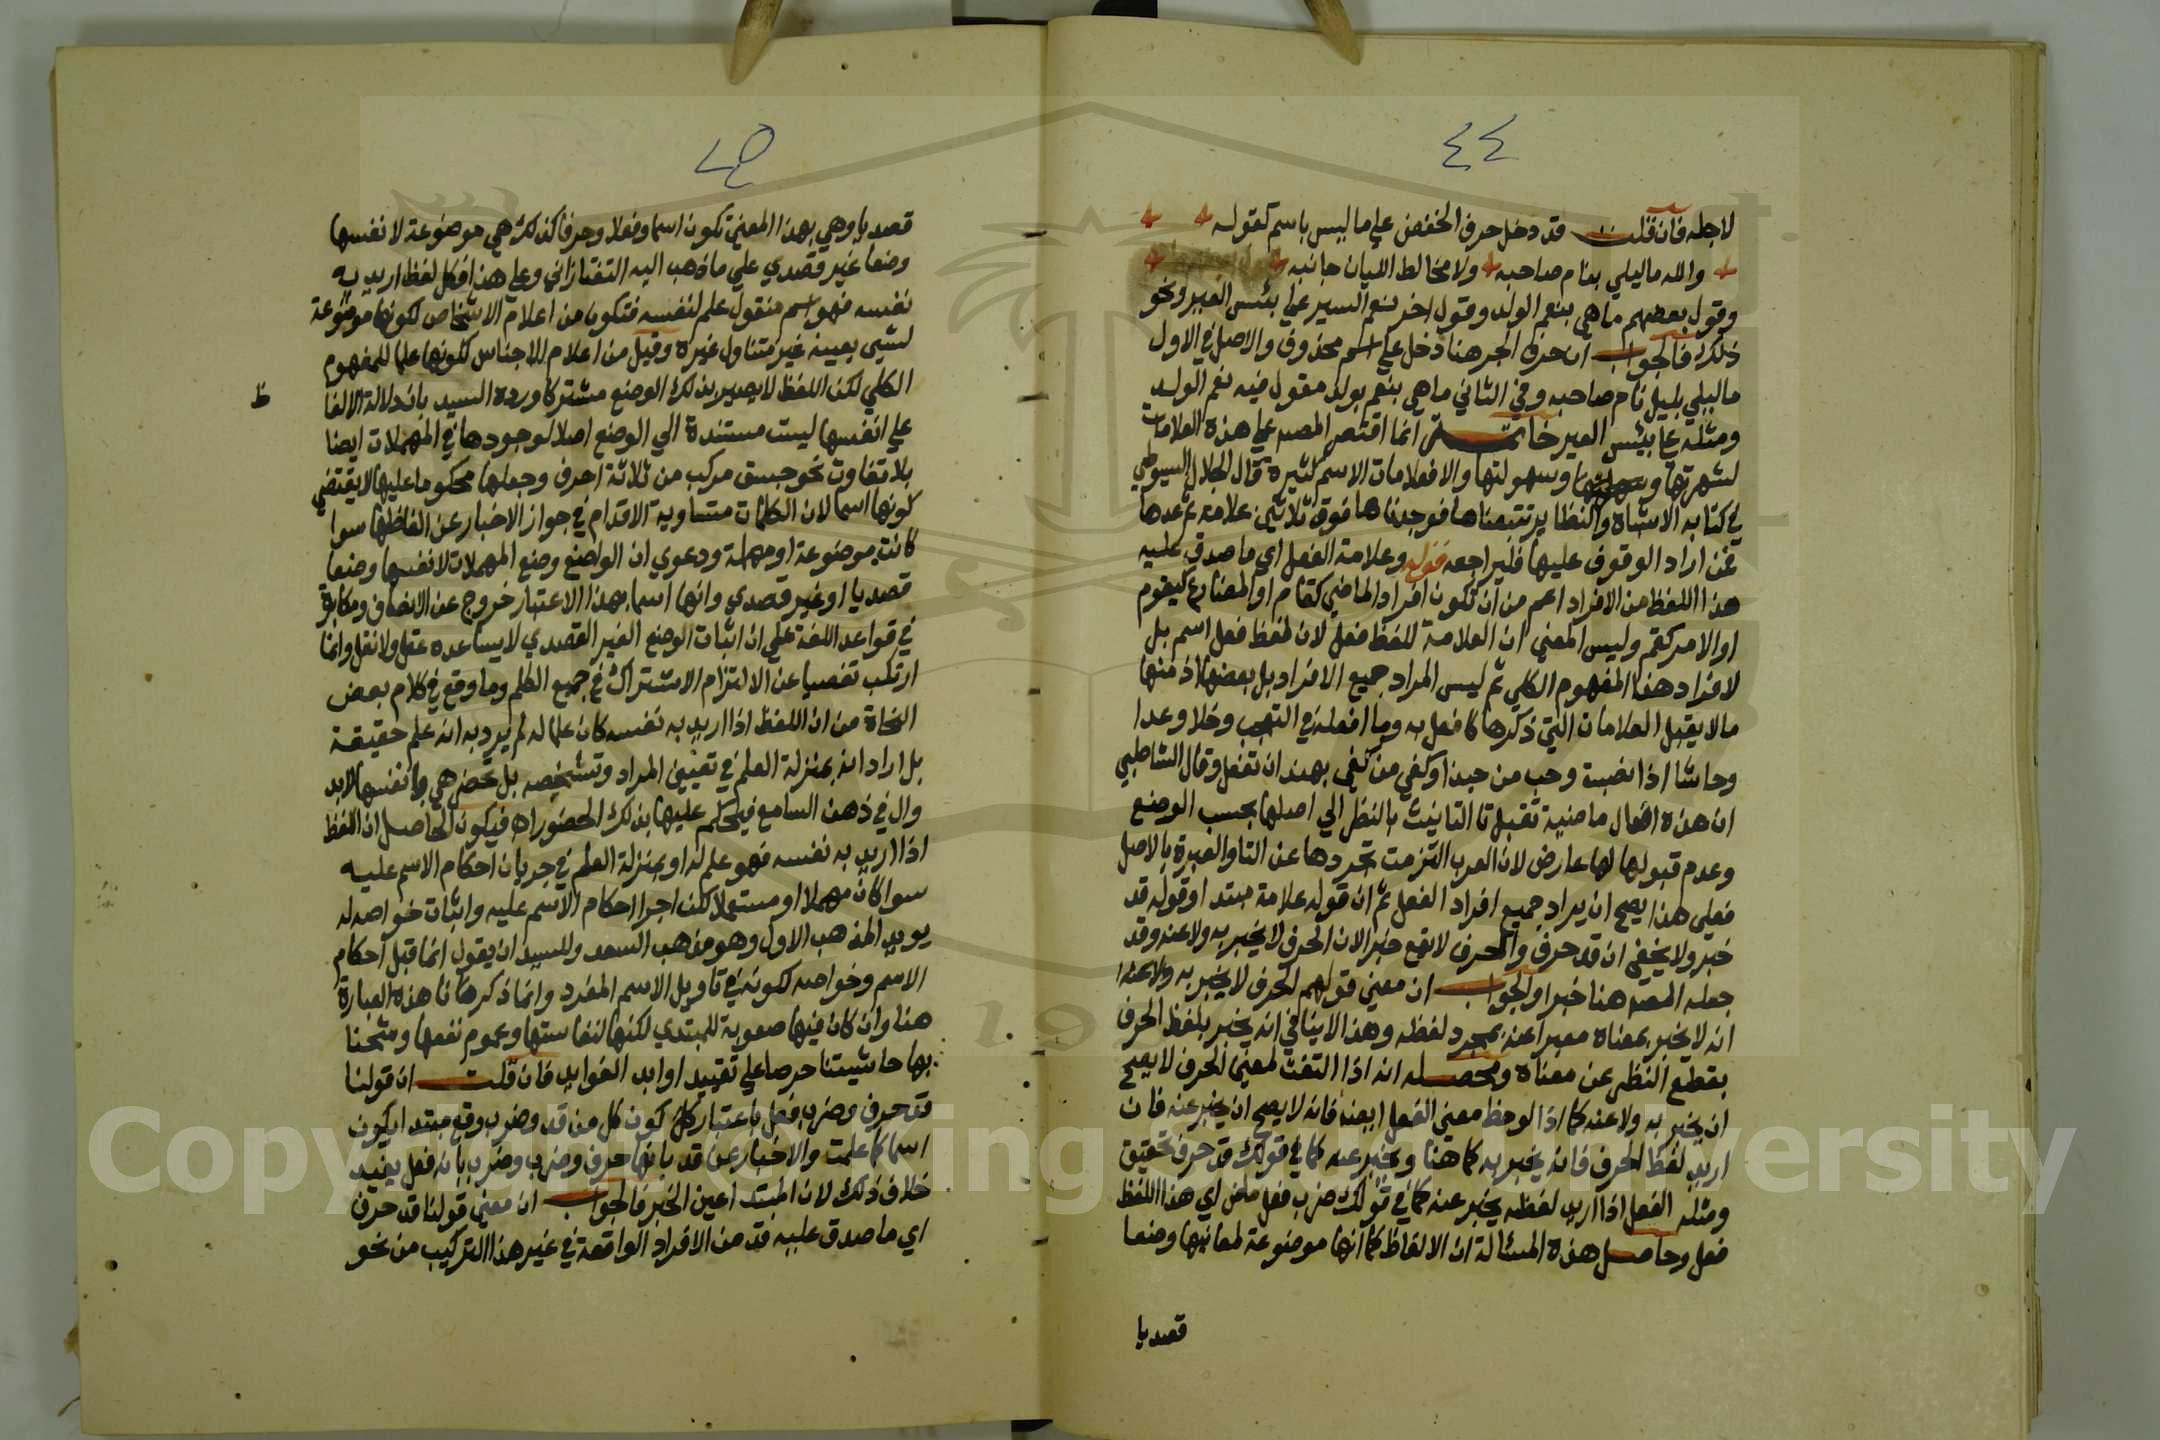 ٤٤
لاجله فان قلت قد دخل حرف الخفض علي ما ليس باسم كقوله
والله ما ليلي بنام صاحبه ولا مخالط الليان جانبه
وقول بعضهم ما هي بنعم الولد وقول اخر نعم السير علي بئس العير ونحو
ذلك فالجواب ان حرف الجر هنا دخل علي اسم محذوف والاصل في الاول
ما ليلي بليل نام صاحبه وفي الثاني ما هي بنعم بولد مقول فيه نعم الولد
ومثله علي بئس العير خاتمة انما اقتصر المص علي هذه العلامات
لشهرتها وسهولتها والا فعلامات الاسم كثيرة قال الجلال السيوطي
في كتابه الاشباه والنظاير تتبعناها فوجدناها فوق ثلاثين علامة ثم عدها
فمن اراد الوقوف عليها فليراجعه قوله وعلامة الفعل اي ما صدق عليه
هذا اللفظ من الافراد اعم من ان تكون افراد الماضي كقام او المضارع كيقوم
او الامر كقم وليس المعني ان العلامة للفظ فعل لان لفظ فعل اسم بل
لافراد هذا المفهوم الكلي ثم ليس المراد جميع الافراد بل بعضها اذ منها
ما لا يقبل العلامات التي ذكرها كافعل به وما افعله في التعجب وخلا وعدا
وحاشا اذا نصبت وحب من حبذا وكفي من كفي بهند ان تفعل وقال الشاطبي
ان هذه افعال ماضية تقبل تا التانيث بالنظر الي اصلها بحسب الوضع
وعدم قبولها لها عارض لان العرب التزمت تجردها عن التا والعبرة بالاصل
فعلي هذا يصح ان يراد جميع افراد الفعل ثم ان قوله علامة مبتدا وقوله قد
خبر ولا يخفي ان قد حرف والحرف لا يقع خبرا لان الحرف لا يخبر به ولا عنه وقد
جعله المص هنا خبرا والجواب ان معني قولهم الحرف لا يخبر به ولا عنه
انه لا يخبر بمعناه معبرا عنه بمجرد لفظه وهذا لا ينافي انه يخبر بلفظ الحرف
بقطع النظر عن معناه ومحصله انه اذا التفت لمعني الحرف لا يصح
ان يخبر به ولا عنه كما اذا لوحظ معني الفعل ايضا فانه لا يصح ان يخبر عنه فان
اريد لفظ الحرف فانه يخبر به كما هنا ويخبر عنه كما في قولك قد حرف تحقيق
ومثله الفعل اذا اريد لفظه يخبر عنه كما في قولك ضرب فعل ماض اي هذا اللفظ
فعل وحاصل هذه المسئالة ان الالفاظ كما انها موضوعة لمعانيها وضعا
قصديا
٤٥
قصديا وهي بهذا المعني تكون اسما وفعلا وحرفا كذلك هي موضوعة لانفسها
وضعا غير قصدي علي ما ذهب اليه التفتازاني وعلي هذا فكل لفظ اريد به
نفسه فهو اسم منقول علم لنفسه فتكون من اعلام الاشخاص لكونها موضوعة
لشي بعينه غير متناول غيره وقيل من اعلام الاجناس لكونها علما للمفهوم
الكلي لكن اللفظ لا يصير بذلك الوضع مشتركا ورده السيد بان دلالة الالفا
ظ
علي انفسها ليست مستندة الي الوضع اصلا لوجودها في المهملات ايضا
بلا تفاوت نحو جسق مركب من ثلاثة احرف وجعلها محكوما عليها لا يقتضي
كونها اسما لان الكلمات متساوية الاقدام في جواز الاخبار عن الفاظها سوا
كانت موضوعة او مهملة ودعوي ان الواضع وضع المهملات لانفسها وضعا
قصديا او غير قصدي وانها اسما بهذا الاعتبار خروج عن الانصاف ومكابرة
في قواعد اللغة علي ان اثبات الوضع الغير القصدي لا يساعده عقل ولا نقل وانما
ارتكب تفصيا عن الالتزام الاشتراك في جميع الكلم وما وقع في كلام بعض
النحاة من ان اللفظ اذا اريد به نفسه كان علما له لم يرد به انه علم حقيقة
بل اراد انه بمنزلة العلم في تعيين المراد وتشخيصه بل تحضر هي بانفسها لابد
وال في ذهن السامع فيحكم عليها بذلك الحضور اه فيكون الحاصل ان اللفظ
اذا اريد به نفسه فهو علم له او بمنزلة العلم في جريان احكام الاسم عليه
سوا كان مهملا او مستعملا لكن اجرا احكام الاسم عليه واثبات خواصه له
يويد المذهب الاول وهو مذهب السعد وللسيد ان يقول انما قبل احكام
الاسم وخواصه لكونه في تاويل الاسم المفرد وانما ذكرنا هذه العبارة
هنا وان كان فيها صعوبة للمبتدي لكنها لنفاستها وعموم نفعها وشحنا
بها حاشيتنا حرصا علي تقييد اوابد الفوايد فان قلت ان قولنا
قد حرف وضرب فعل باعتبار كون كل من قد وضرب وقع مبتدا يكون
اسما كما علمت والاخبار عن قد بانها حرف وضرب وضرب بانه فعل يفيد
خلاف ذلك لان المبتدا عين الخبر فالجواب ان معني قولنا قد حرف
اي ما صدق عليه قد من الافراد الواقعة في غير هذا التركيب من نحو
Copyright © King Saud University